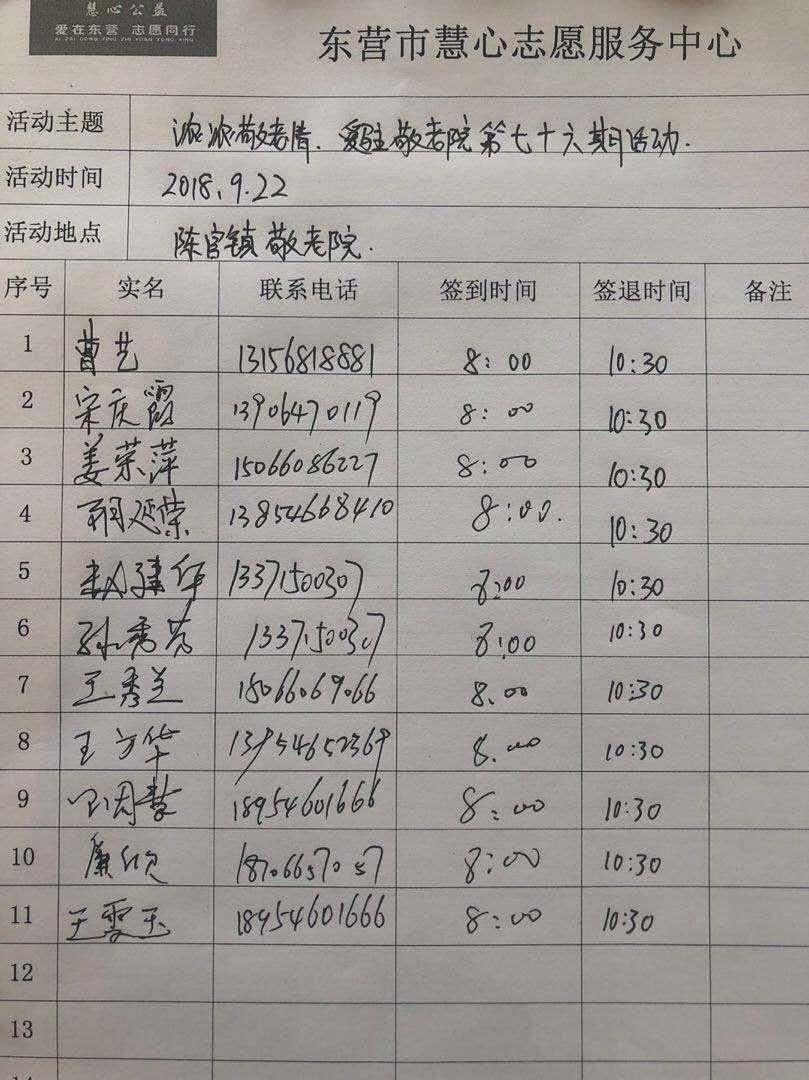 慧心公益
爱在东营 志愿同行
AI ZAI DONG YING ZHI YUAN TONG XING
东营市慧心志愿服务中心
活动主题 浓浓敬老情. 爱驻敬老院第七十六期活动.
活动时间 2018.9.22
活动地点 陈官镇敬老院.
序号 实名 联系电话 签到时间 签退时间 备注
1 曹艺 13156818881 8:00 10:30
2 宋庆霞 13906470119 8:00 10:30
3 姜荣萍 15066086227 8:00 10:30
4 延荣 13854668410 8:00. 10:30
5 赵建华 13371500307 8:00 10:30
6 孙秀芳 13371500307 8:00 10:30
7 王秀兰 15066069066 8.00 10:30
8 王方华 13954652369 8.00 10:30
9 18954601666 8:00 10:30
10 康欣 18706657057 8:00 10:30
11 王雪玉 18954601666 8:00 10:30
12
13